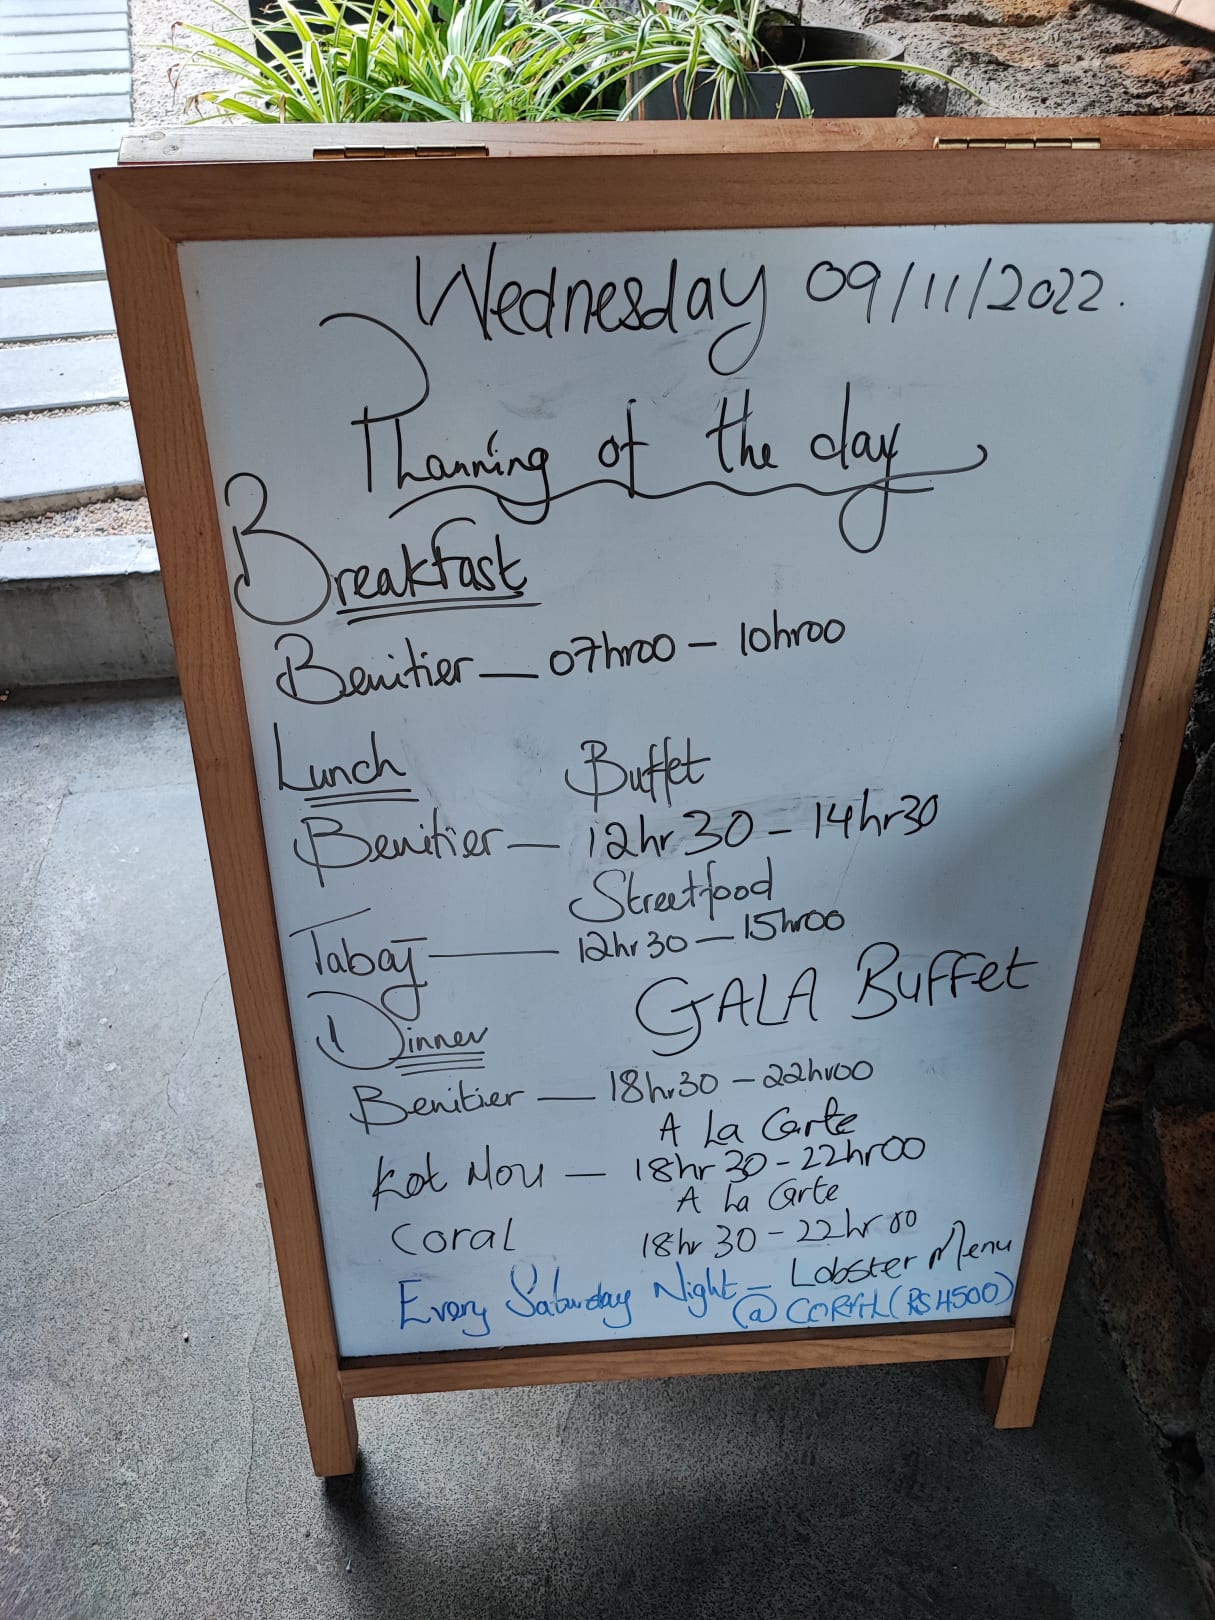 Wednesday 09/11/2022.
Planning of the day
Breakfast
Benitier — 07hr00 – 10hr00
Lunch Buffet
Benitier — 12hr30 – 14hr30
Streetfood
Tabaj — 12hr30 – 15hr00
Dinner GALA Buffet
Benitier — 18hr30 – 22hr00
A La Carte
Kot Nou — 18hr30 – 22hr00
A La Carte
Coral 18hr30 – 22hr00
Every Saturday Night – Lobster Menu
@ CORAL (RS 4500)